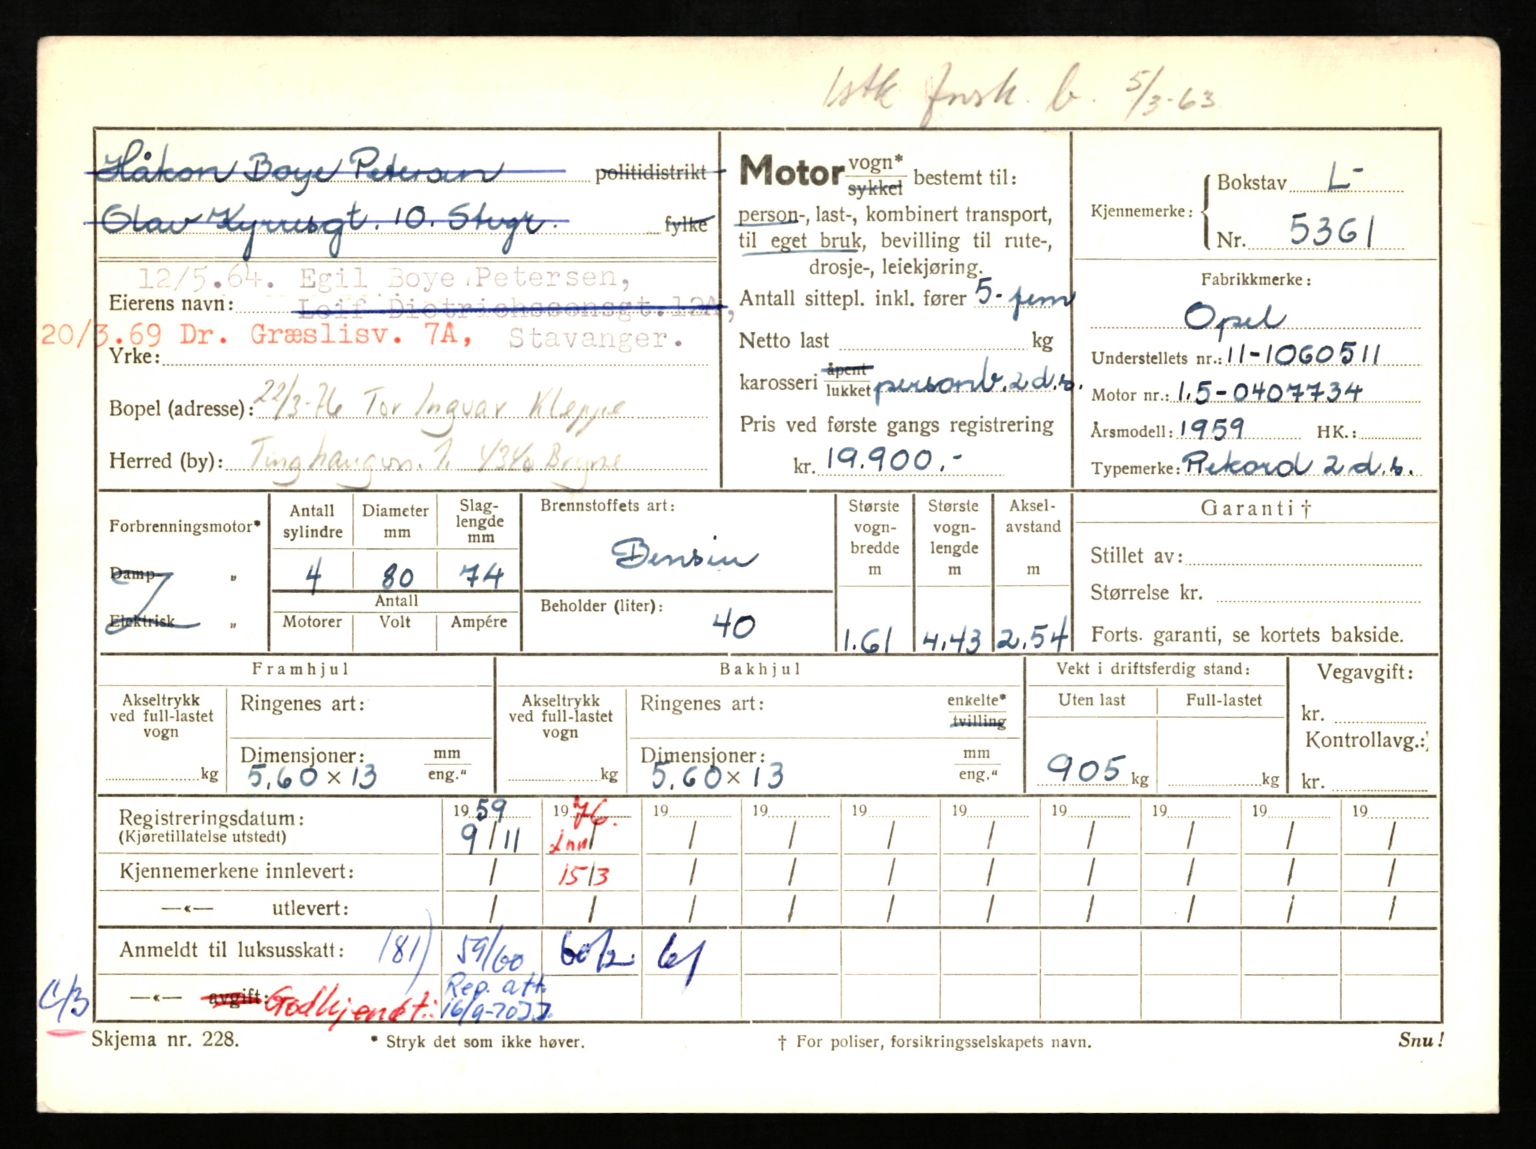 1stk forsk. b. 5/3-63
Håkon Boye Petersen politidistrikt
Olav Kyrresgt. 10. Stvgr. fylke
12/5.64. Egil Boye Petersen,
Eierens navn: Leif Dietrichssonsgt. 12A,
20/3.69 Dr. Græslisv. 7A, Stavanger.
Yrke:
Bopel (adresse): 22/3-76 Tor Ingvar Kleppe
Herred (by): 4340 Bryne
Motor vogn* sykkel bestemt til:
person-, last-, kombinert transport,
til eget bruk, bevilling til rute-,
drosje-, leiekjøring.
Antall sittepl. inkl. fører 5- fem
Netto last kg
karosseri åpent lukket personb. 2 d.s.
Pris ved første gangs registrering
kr. 19.900,-
Kjennemerke: Bokstav L-
Nr. 5361
Fabrikkmerke:
Opel
Understellets nr.: 11-1060511
Motor nr.: 1.5-0407734
Årsmodell: 1959 HK.:
Typemerke: Rekord 2 d.s.
Forbrenningsmotor*
Damp- „
Elektrisk „
Antall sylindre Diameter mm Slag-lengde mm
4 80 74
Antall
Motorer Volt Ampére
Brennstoffets art:
Bensin
Beholder (liter):
40
Største vogn-bredde m 1.61
Største vogn-lengde m 4.43
Aksel-avstand m 2.54
Garanti †
Stillet av:
Størrelse kr.
Forts. garanti, se kortets bakside.
Framhjul
Akseltrykk ved full-lastet vogn kg
Ringenes art:
Dimensjoner: mm eng."
5.60 x 13
Bakhjul
Akseltrykk ved full-lastet vogn kg
Ringenes art: enkelte* tvilling
Dimensjoner: mm eng."
5.60 x 13
Vekt i driftsferdig stand:
Uten last Full-lastet
905 kg kg
Vegavgift:
kr.
Kontrollavg.:
kr.
Registreringsdatum: 1959 1976. 19 19 19 19 19 19 19 19
(Kjøretillatelse utstedt) 9/11 Inn / / / / / / / / /
Kjennemerkene innlevert: / 15/3 / / / / / / / /
—«— utlevert: / / / / / / / / / /
Anmeldt til luksusskatt: (81) 59/60 60/2. 61
C/3 —«— avgift: Godkjendt: Rep. att. 16/9-70 JJ.
Skjema nr. 228. * Stryk det som ikke høver. † For poliser, forsikringsselskapets navn. Snu!